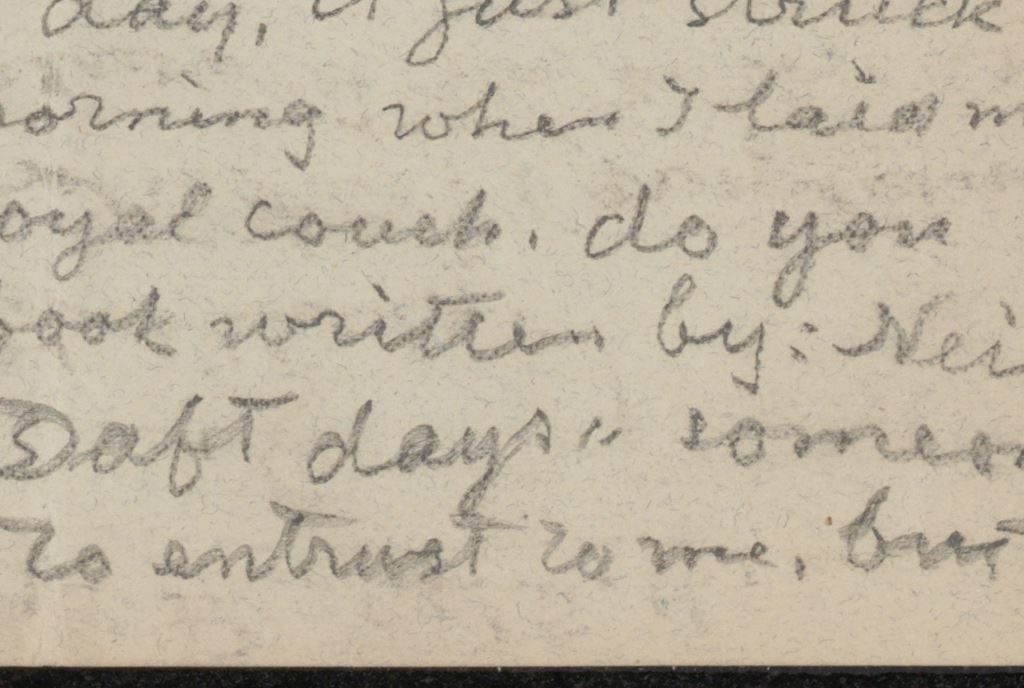 day, it just struck
orning when I laid m
oyal couch. do you
book written by: Nei
Daft days" someon
to entrust to me. but